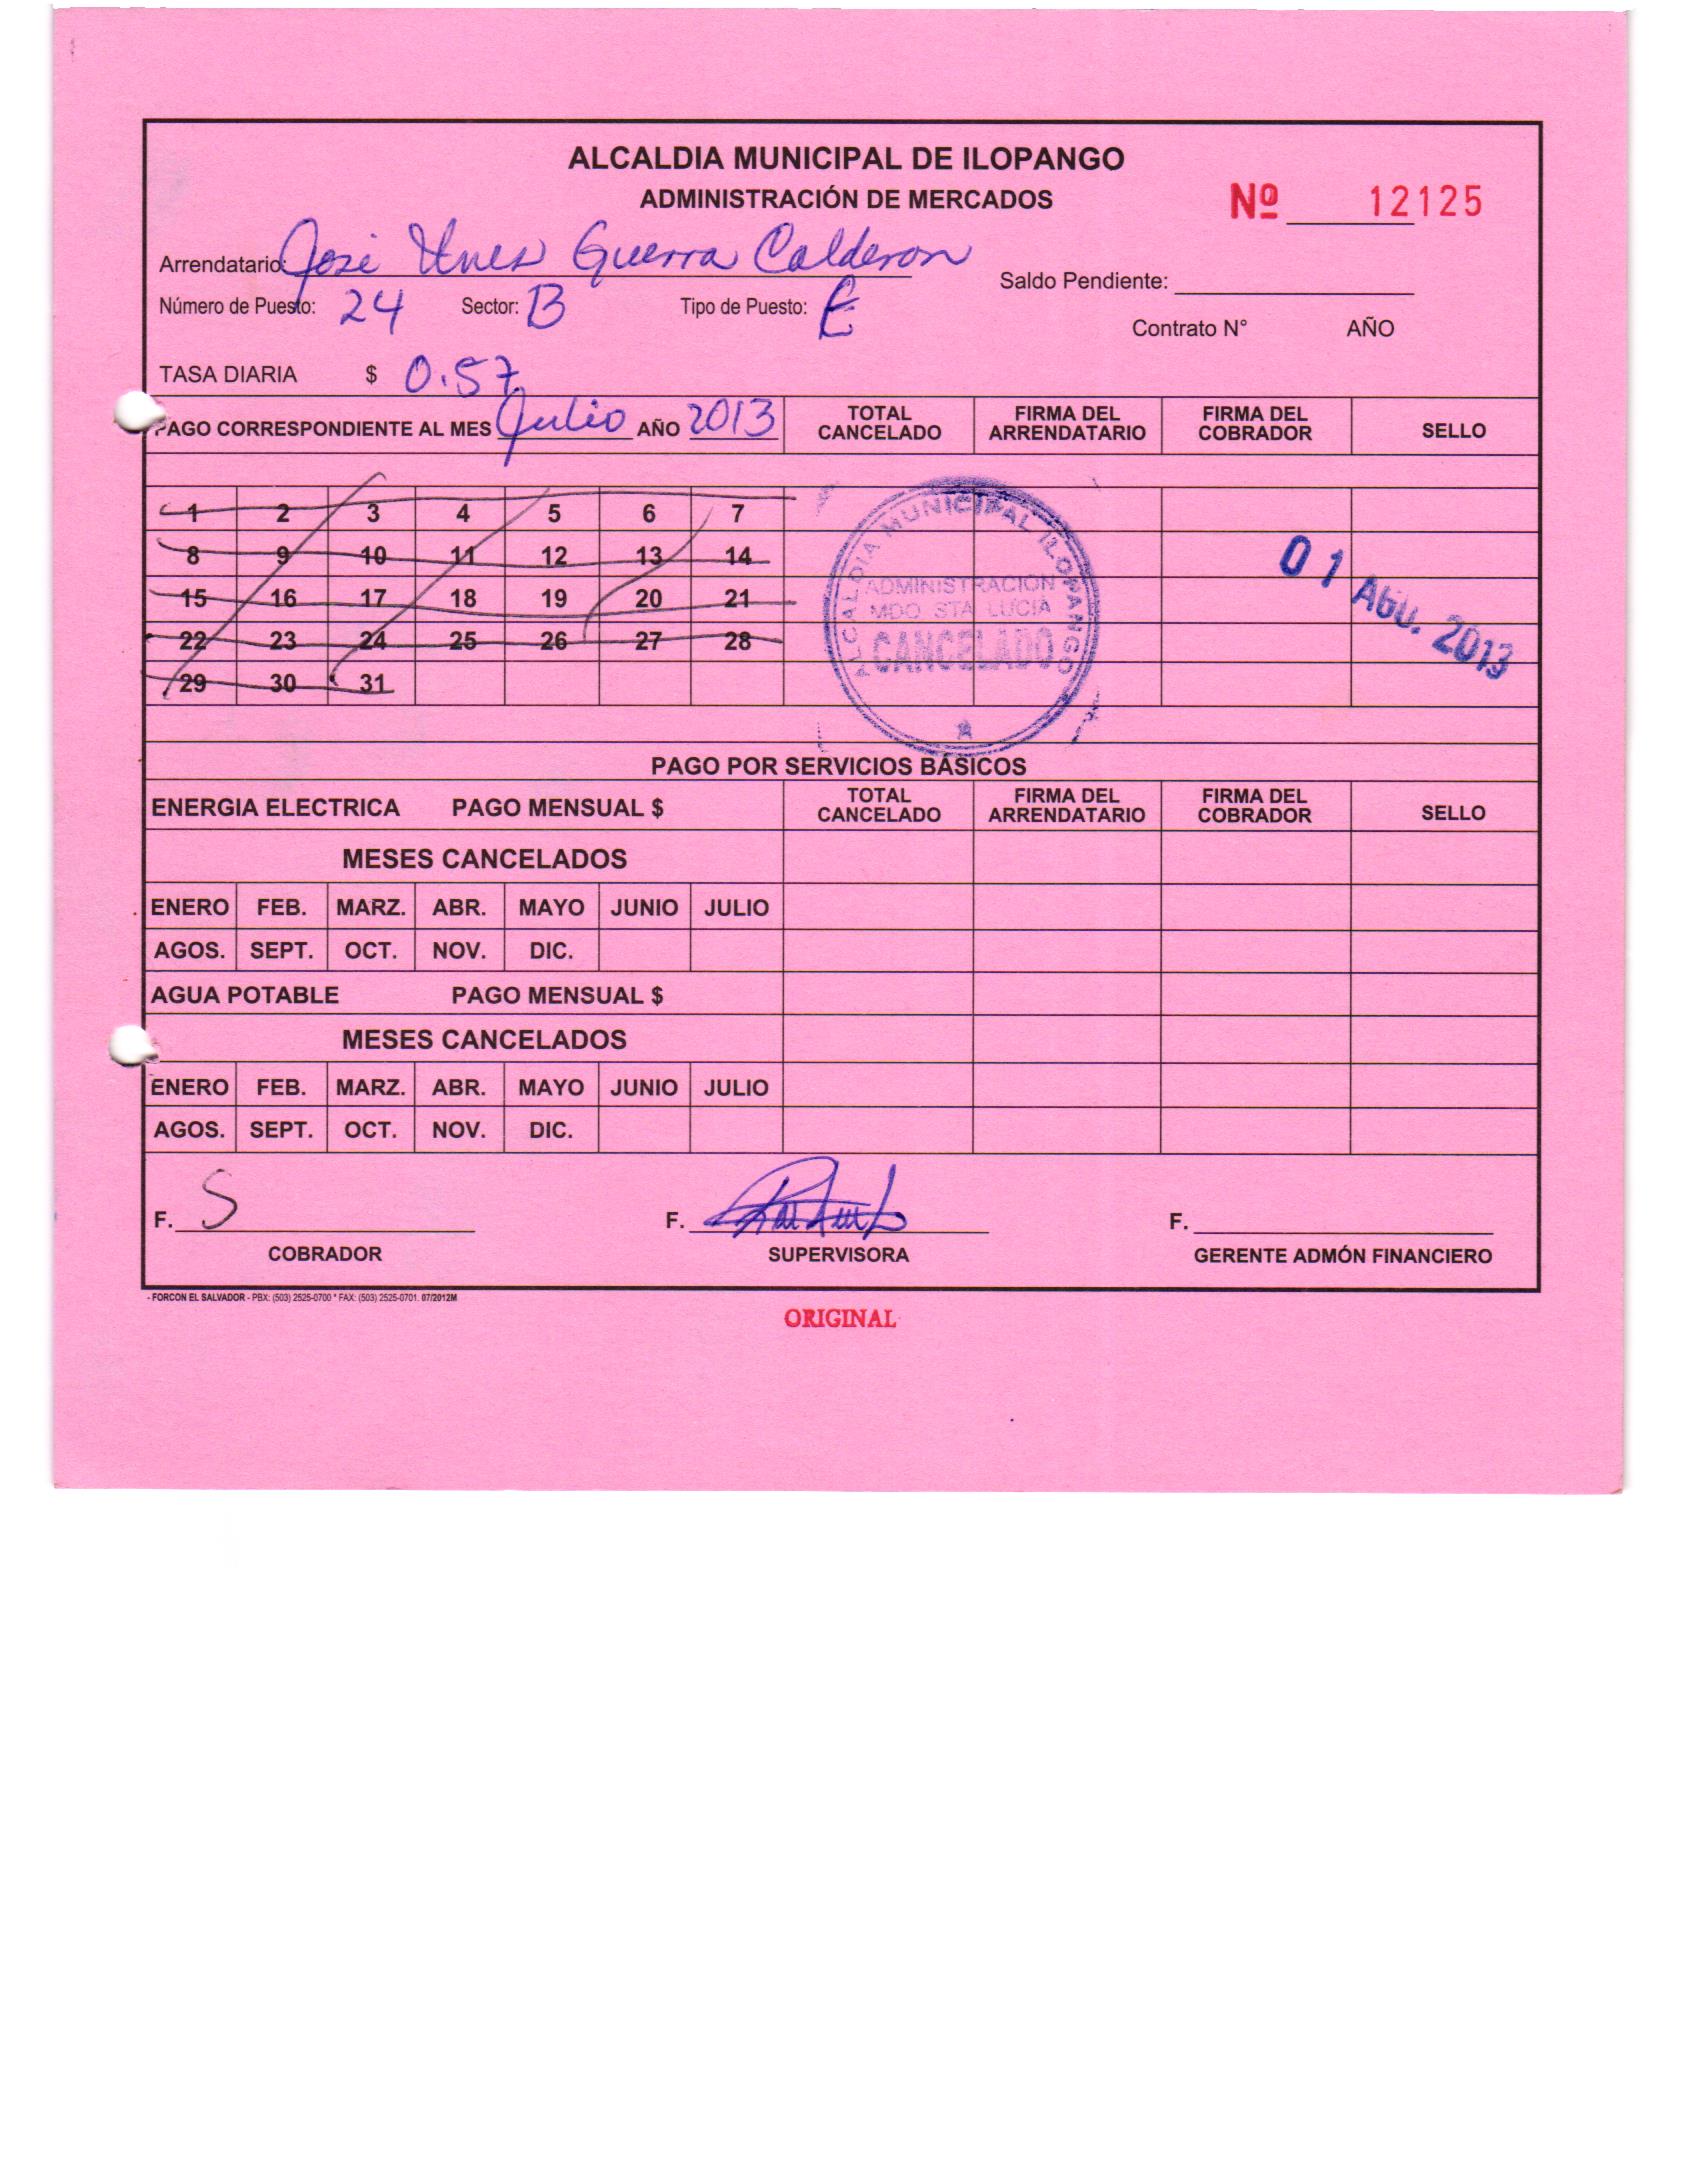 ALCALDIA MUNICIPAL DE ILOPANGO
ADMINISTRACIÓN DE MERCADOS
Nº 12125
Arrendatario: José Ynes Guerra Calderon
Saldo Pendiente:
Número de Puesto: 24 Sector: B Tipo de Puesto: E
Contrato N° AÑO
TASA DIARIA $ 0.57
PAGO CORRESPONDIENTE AL MES Julio AÑO 2013 TOTAL CANCELADO FIRMA DEL ARRENDATARIO FIRMA DEL COBRADOR SELLO
1 2 3 4 5 6 7
8 9 10 11 12 13 14
15 16 17 18 19 20 21
22 23 24 25 26 27 28
29 30 31
ALCALDIA MUNICIPAL ILOPANGO
ADMINISTRACION
MDO. STA. LUCIA
CANCELADO
01 AGO. 2013
PAGO POR SERVICIOS BÁSICOS
ENERGIA ELECTRICA PAGO MENSUAL $ TOTAL CANCELADO FIRMA DEL ARRENDATARIO FIRMA DEL COBRADOR SELLO
MESES CANCELADOS
ENERO FEB. MARZ. ABR. MAYO JUNIO JULIO
AGOS. SEPT. OCT. NOV. DIC.
AGUA POTABLE PAGO MENSUAL $
MESES CANCELADOS
ENERO FEB. MARZ. ABR. MAYO JUNIO JULIO
AGOS. SEPT. OCT. NOV. DIC.
F. F. F.
COBRADOR SUPERVISORA GERENTE ADMÓN FINANCIERO
- FORCON EL SALVADOR - PBX: (503) 2525-0700 * FAX: (503) 2525-0701. 07/2012M
ORIGINAL